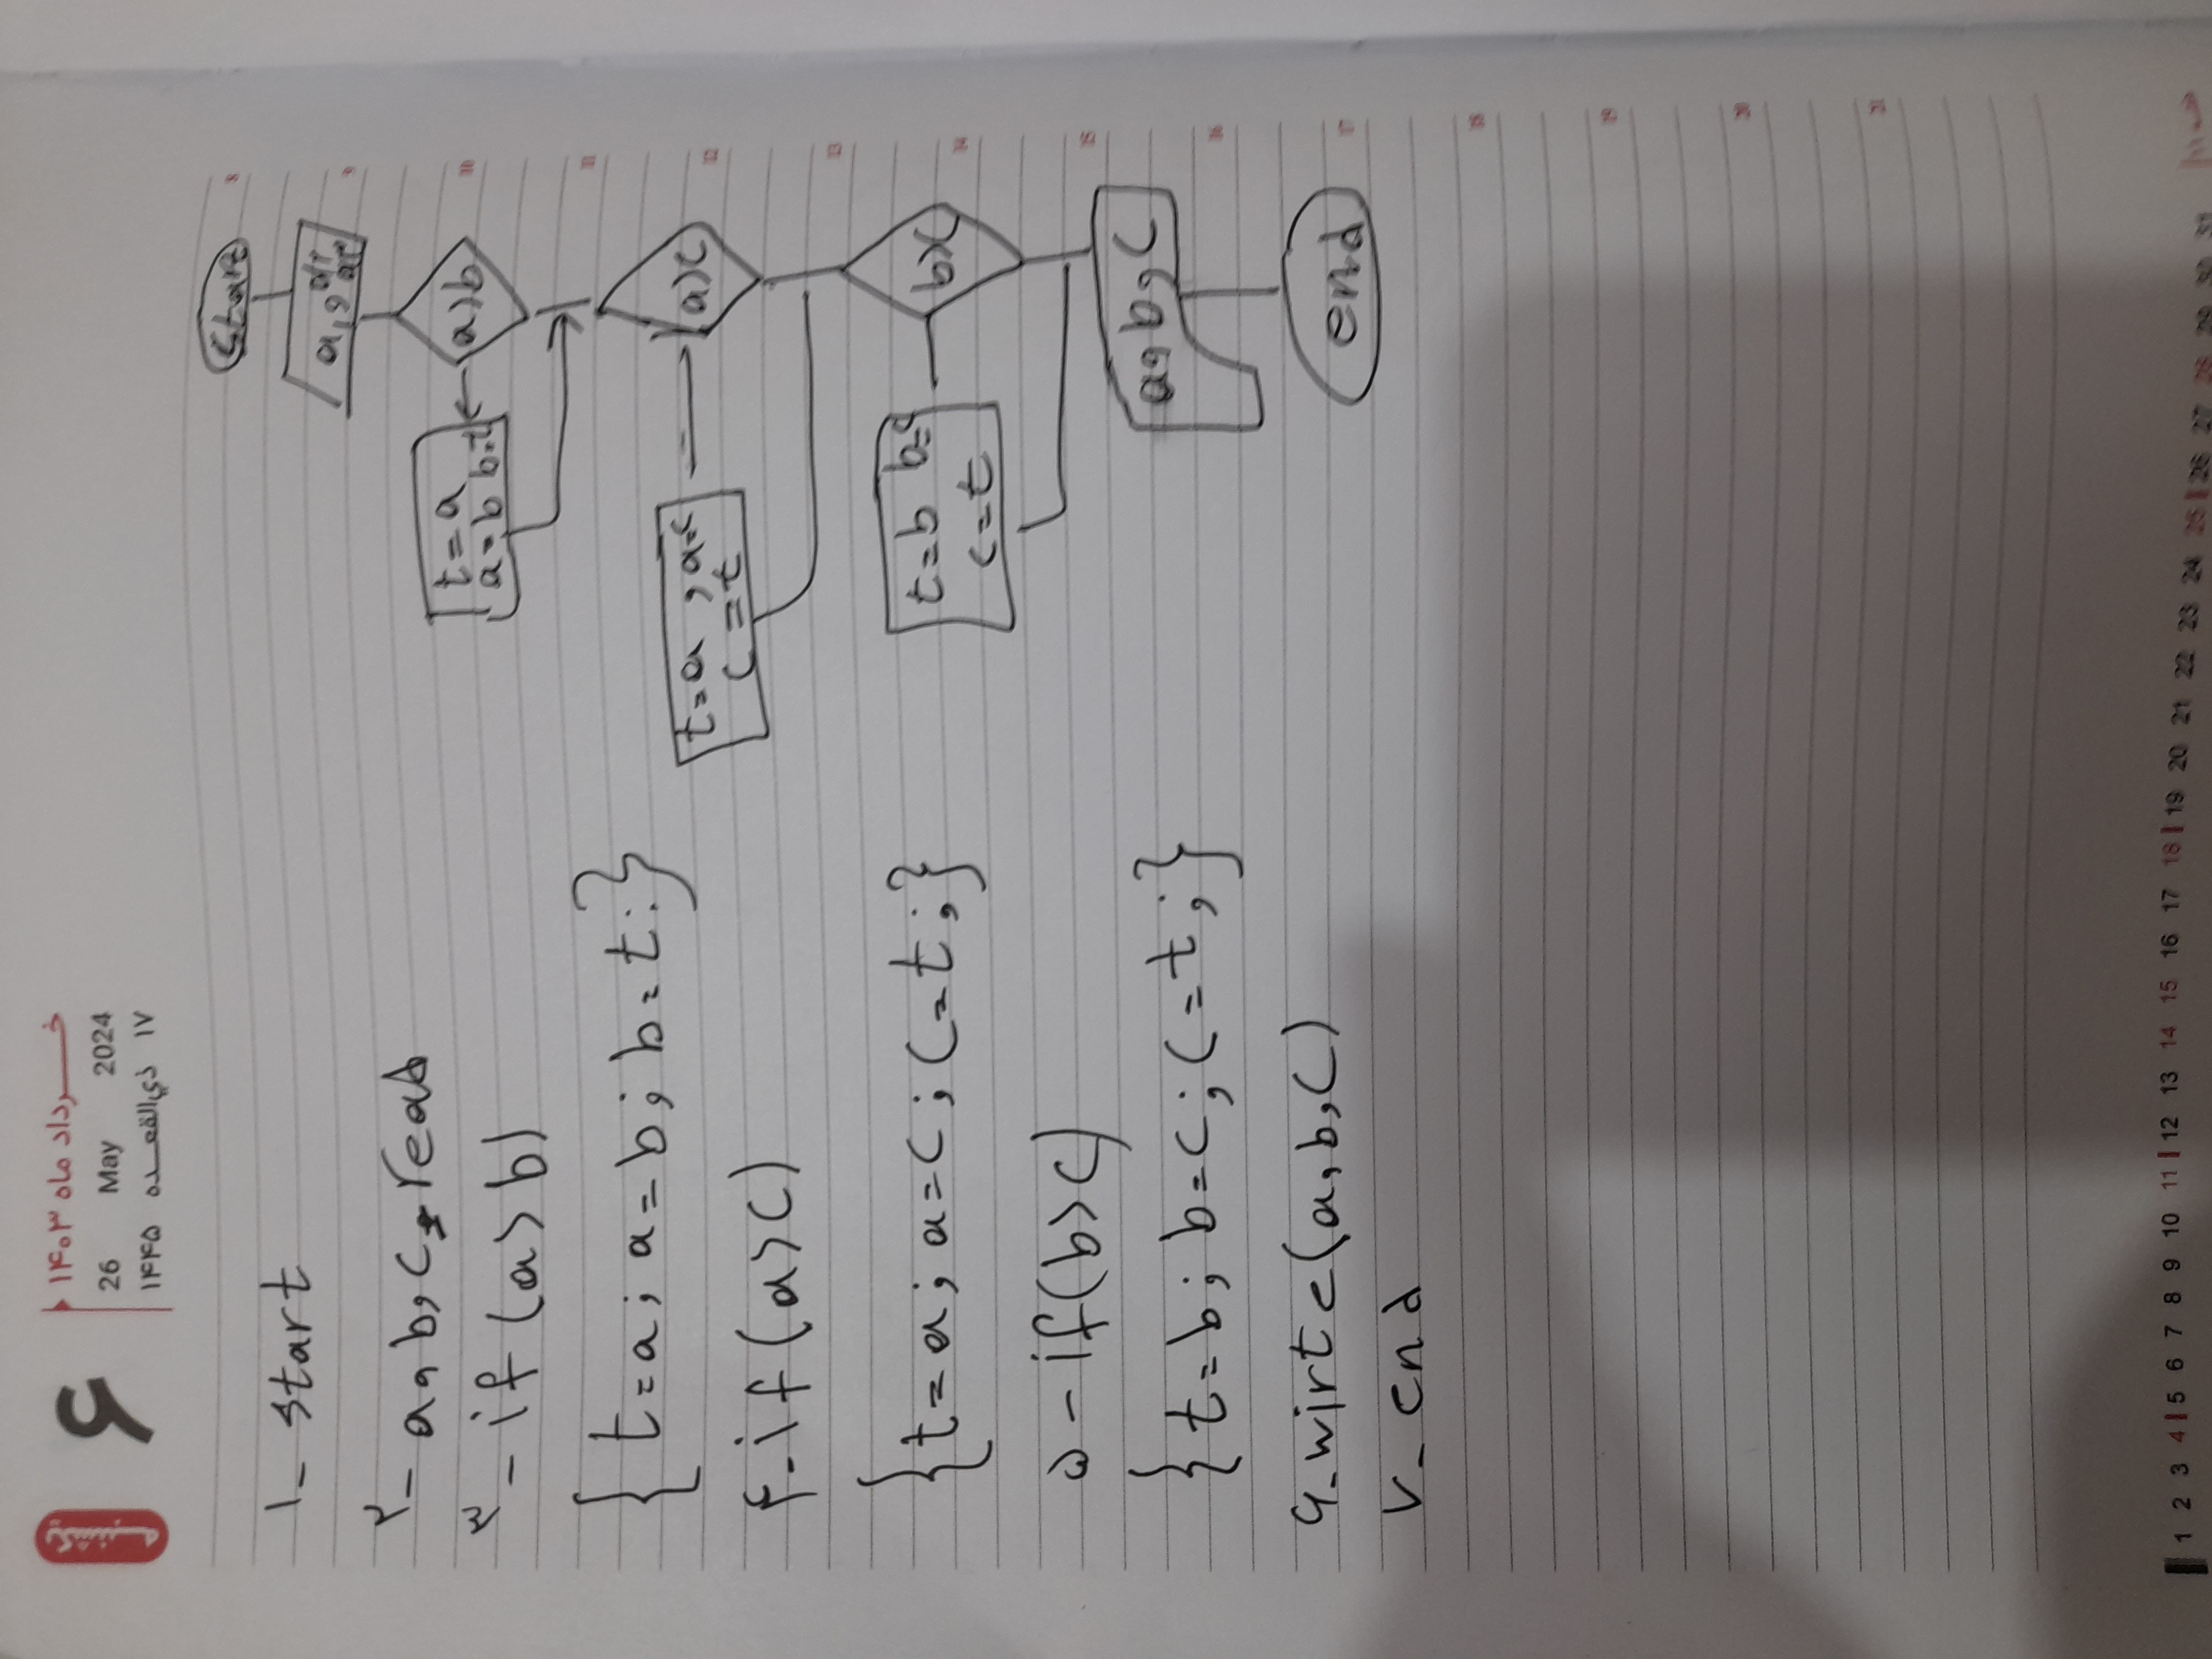 یکشنبه
۶
خرداد ماه ۱۴۰۳
26 May 2024
۱۷ ذي‌القعده ۱۴۴۵
۱- start
۲- a, b, c, read
۳- if (a > b)
{ t = a ; a = b ; b = t : }
۴- if (a > c)
{ t = a ; a = c ; c = t ; }
۵- if (b > c)
{ t = b ; b = c ; c = t ; }
۶- wirte (a, b, c)
۷- end
start
a > b
t = a
a = b b = t
a > c
t = a , a = c
c = t
b > c
t = b b = c
c = t
a, b, c
end
8
9
10
11
12
13
14
15
16
17
18
19
20
21
1 2 3 4 | 5 6 7 8 9 10 11 | 12 13 14 15 16 17 18 | 19 20 21 22 23 24 25 | 26 27 28 29 30 31